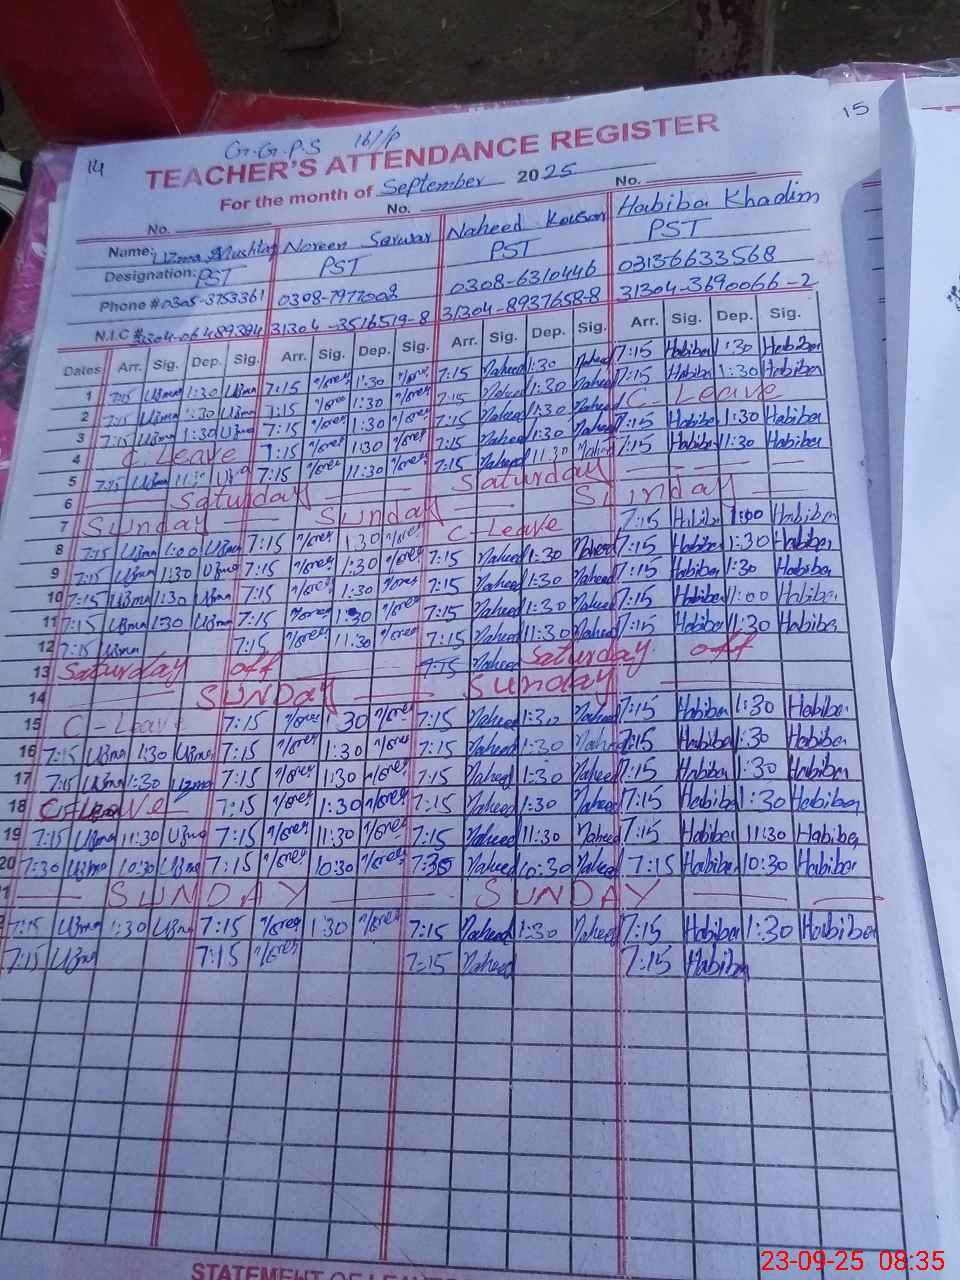 14
G.G.P.S 16/1P
15
TEACHER'S ATTENDANCE REGISTER
For the month of September 2025
No. No. No.
Name: Uzma Mushtaq Noreen Sarwar Naheed Kousar Habiba Khadim
Designation: PST PST PST PST
Phone # 0308-7977002 0308-6310446 03136633568
N.I.C # 31304-3516519-8 31304-8937658-8 31304-3690066-2
Dates Arr. Sig. Dep. Sig. Arr. Sig. Dep. Sig. Arr. Sig. Dep. Sig. Arr. Sig. Dep. Sig.
1 7:15 Uzma 1:30 Uzma 7:15 1:30 7:15 Naheed 1:30 Naheed 7:15 Habiba 1:30 Habiba
2 7:15 Uzma 1:30 Uzma 7:15 1:30 7:15 Naheed 1:30 Naheed 7:15 Habiba 1:30 Habiba
3 7:15 Uzma 1:30 Uzma 7:15 1:30 7:15 Naheed 1:30 Naheed C-Leave
4 C.Leave 7:15 1:30 7:15 Naheed 1:30 Naheed 7:15 Habiba 1:30 Habiba
5 7:15 Uzma 11:30 7:15 11:30 7:15 Naheed 11:30 Naheed 7:15 Habiba 11:30 Habiba
6 Saturday Saturday
7 Sunday Sunday Sunday
8 7:15 Uzma 1:00 Uzma 7:15 1:30 C-Leave 7:15 Habiba 1:00 Habiba
9 7:15 Uzma 1:30 Uzma 7:15 1:30 7:15 Naheed 1:30 Naheed 7:15 Habiba 1:30 Habiba
10 7:15 Uzma 1:30 Uzma 7:15 1:30 7:15 Naheed 1:30 Naheed 7:15 Habiba 1:30 Habiba
11 7:15 Uzma 1:30 Uzma 7:15 1:30 7:15 Naheed 1:30 Naheed 7:15 Habiba 11:00 Habiba
12 7:15 Uzma 7:15 11:30 7:15 Naheed 11:30 Naheed 7:15 Habiba 11:30 Habiba
13 Saturday off 7:15 Naheed Saturday off
14 SUNDay Sunday
15 C-Leave 7:15 1:30 7:15 Naheed 1:30 Naheed 7:15 Habiba 1:30 Habiba
16 7:15 Uzma 1:30 Uzma 7:15 1:30 7:15 Naheed 1:30 Naheed 7:15 Habiba 1:30 Habiba
17 7:15 Uzma 1:30 Uzma 7:15 1:30 7:15 Naheed 1:30 Naheed 7:15 Habiba 1:30 Habiba
18 C-Leave 7:15 1:30 7:15 Naheed 1:30 Naheed 7:15 Habiba 1:30 Habiba
19 7:15 Uzma 11:30 Uzma 7:15 11:30 7:15 Naheed 11:30 Naheed 7:15 Habiba 11:30 Habiba
20 7:30 Uzma 10:30 Uzma 7:15 10:30 7:35 Naheed 10:30 Naheed 7:15 Habiba 10:30 Habiba
1 SUNDAY SUNDAY
7:15 Uzma 1:30 Uzma 7:15 1:30 7:15 Naheed 1:30 Naheed 7:15 Habiba 1:30 Habiba
7:15 Uzma 7:15 7:15 Naheed 7:15 Habiba
STATEMENT OF
23-09-25 08:35